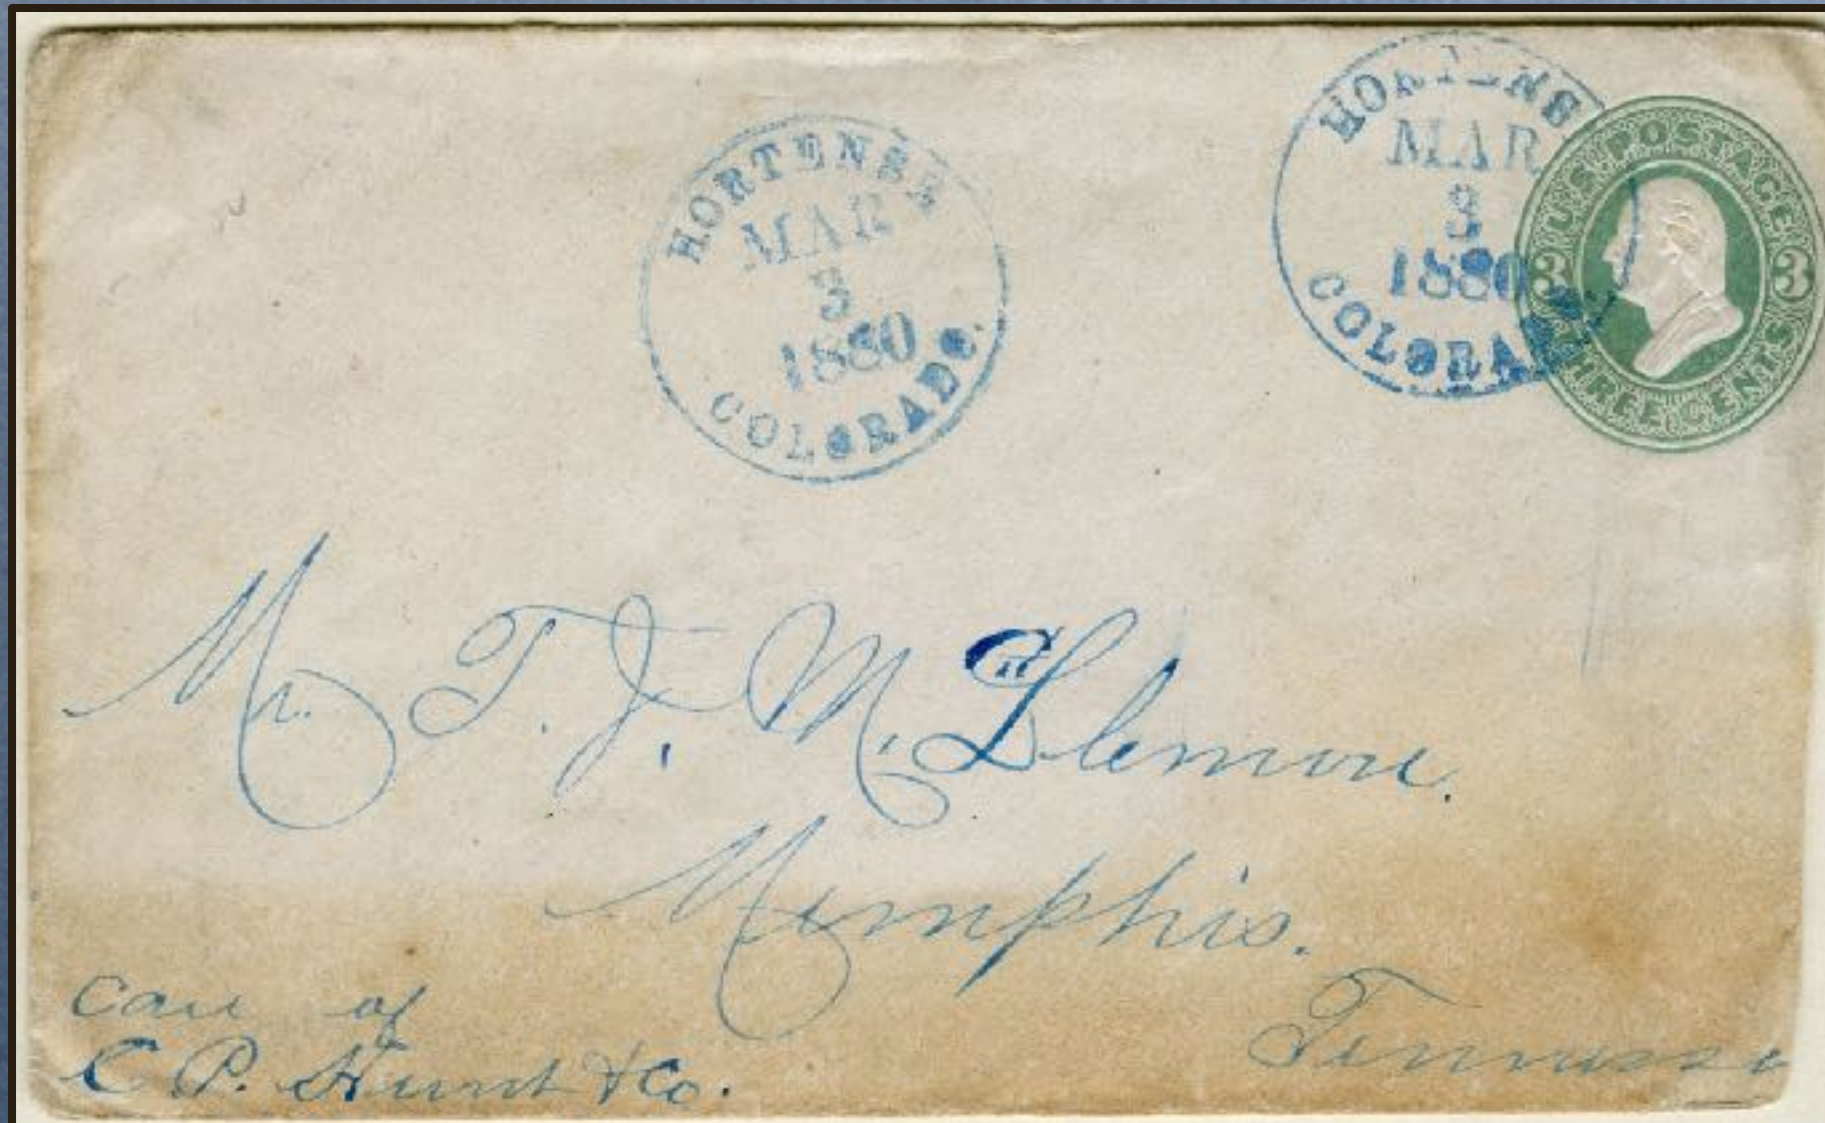 HORTENSE
MAR
3
1880
COLORADO.
HORTENS
MAR
3
1880
COLORADO
U.S. POSTAGE
3 3
THREE CENTS
Mr. T. J. M.
Memphis.
Tennessee
Care of
C. P. Hunt & Co.